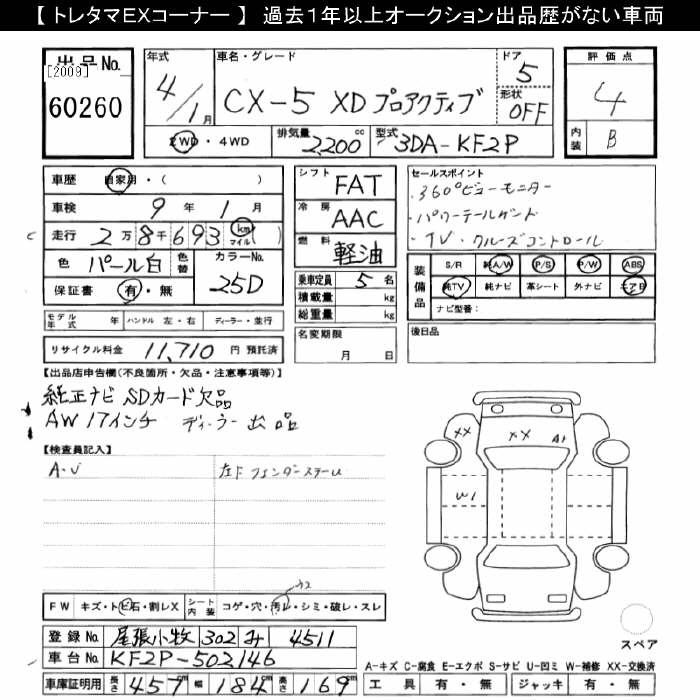 【 トレタマEXコーナー 】 過去1年以上オークション出品歴がない車両
出品No.
[2009]
60260
年式
4/1月
車名・グレード
CX-5 XD プロアクティブ
ドア
5
形状
OFF
2WD・4WD
排気量
2,200cc
型式
3DA-KF2P
評価点
4
内装
B
車歴 自家用・( )
車検 9年 1月
走行 2万8千693 km マイル ( )
色 パール白 色替 カラーNo.
25D
保証書 有・無
モデル年式 年 ハンドル 左・右 ディーラー・並行
リサイクル料金 11,710 円 預託済
シフト FAT
冷房 AAC
燃料 軽油
乗車定員 5 名
積載量 kg
総重量 kg
名変期限
月 日
セールスポイント
・360°ビューモニター
・パワーテールゲート
・TV・クルーズコントロール
装備品
S/R 純A/W P/S P/W ABS
純TV 純ナビ 革シート 外ナビ エアB
ナビ型番:
後日品
【出品店申告欄(不良箇所・欠品・注意事項等)】
純正ナビ SDカード欠品
AW 17インチ ディーラー出品
【検査員記入】
A・U
XX
XX
A1
W1
FW キズ・トビ石・割レX シート内装 コゲ・穴・汚レ・シミ・破レ・スレ
登録No. 尾張小牧 302 み 4511
車台No. KF2P-502146
車庫証明用 長さ 457 幅 184 高さ 169
スペア
A-キズ C-腐食 E-エクボ S-サビ U-凹ミ W-補修 XX-交換済
工具 有・無 ジャッキ 有・無